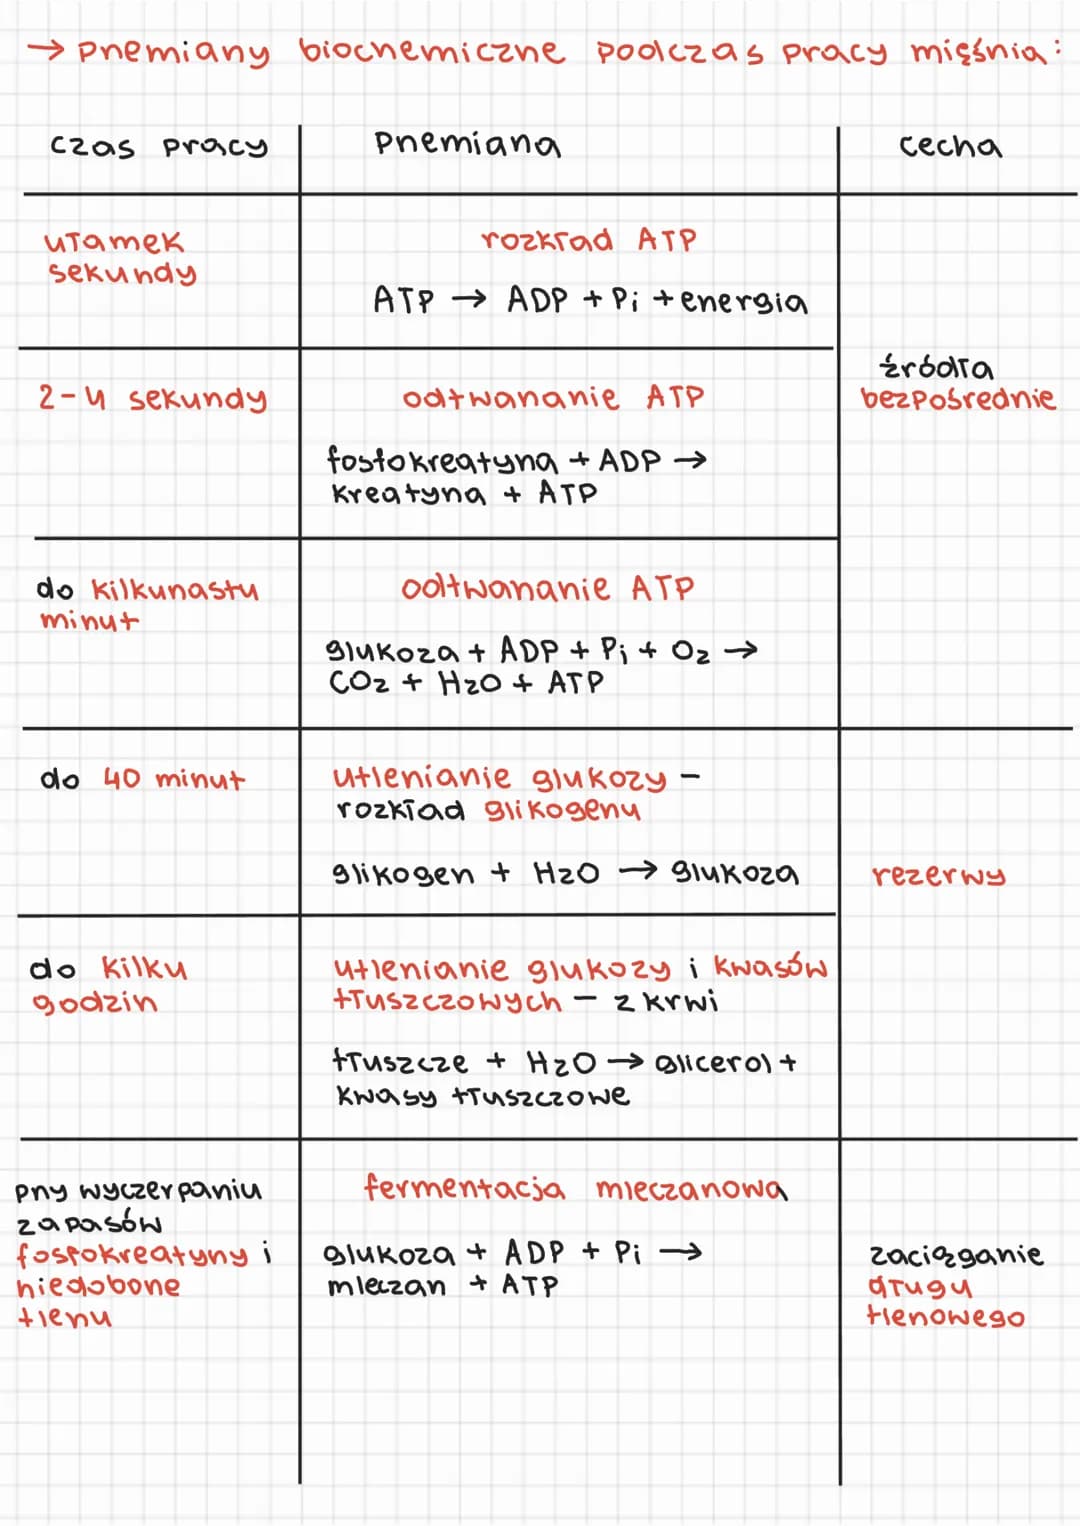 → przemiany biochemiczne podczas pracy mięśnia:
czas pracy
przemiana
cecha
ułamek
sekundy
rozkład ATP
ATP → ADP + Pi + energia
2-4 sekundy
odtwarzanie ATP
fosfokreatyna + ADP →
kreatyna + ATP
do kilkunastu
minut
odtwarzanie ATP
glukoza + ADP + Pi + O2 →
CO2 + H2O + ATP
źródła
bezpośrednie
do 40 minut
utlenianie glukozy -
rozkład glikogenu
glikogen + H2O → glukoza
do kilku
godzin
utlenianie glukozy i kwasów
tłuszczowych - z krwi
tłuszcze + H2O → glicerol +
kwasy tłuszczowe
rezerwy
przy wyczerpaniu
zapasów
fosfokreatyny i
niedoborze
tlenu
fermentacja mleczanowa
glukoza + ADP + Pi →
mleczan + ATP
zaciąganie
długu
tlenowego